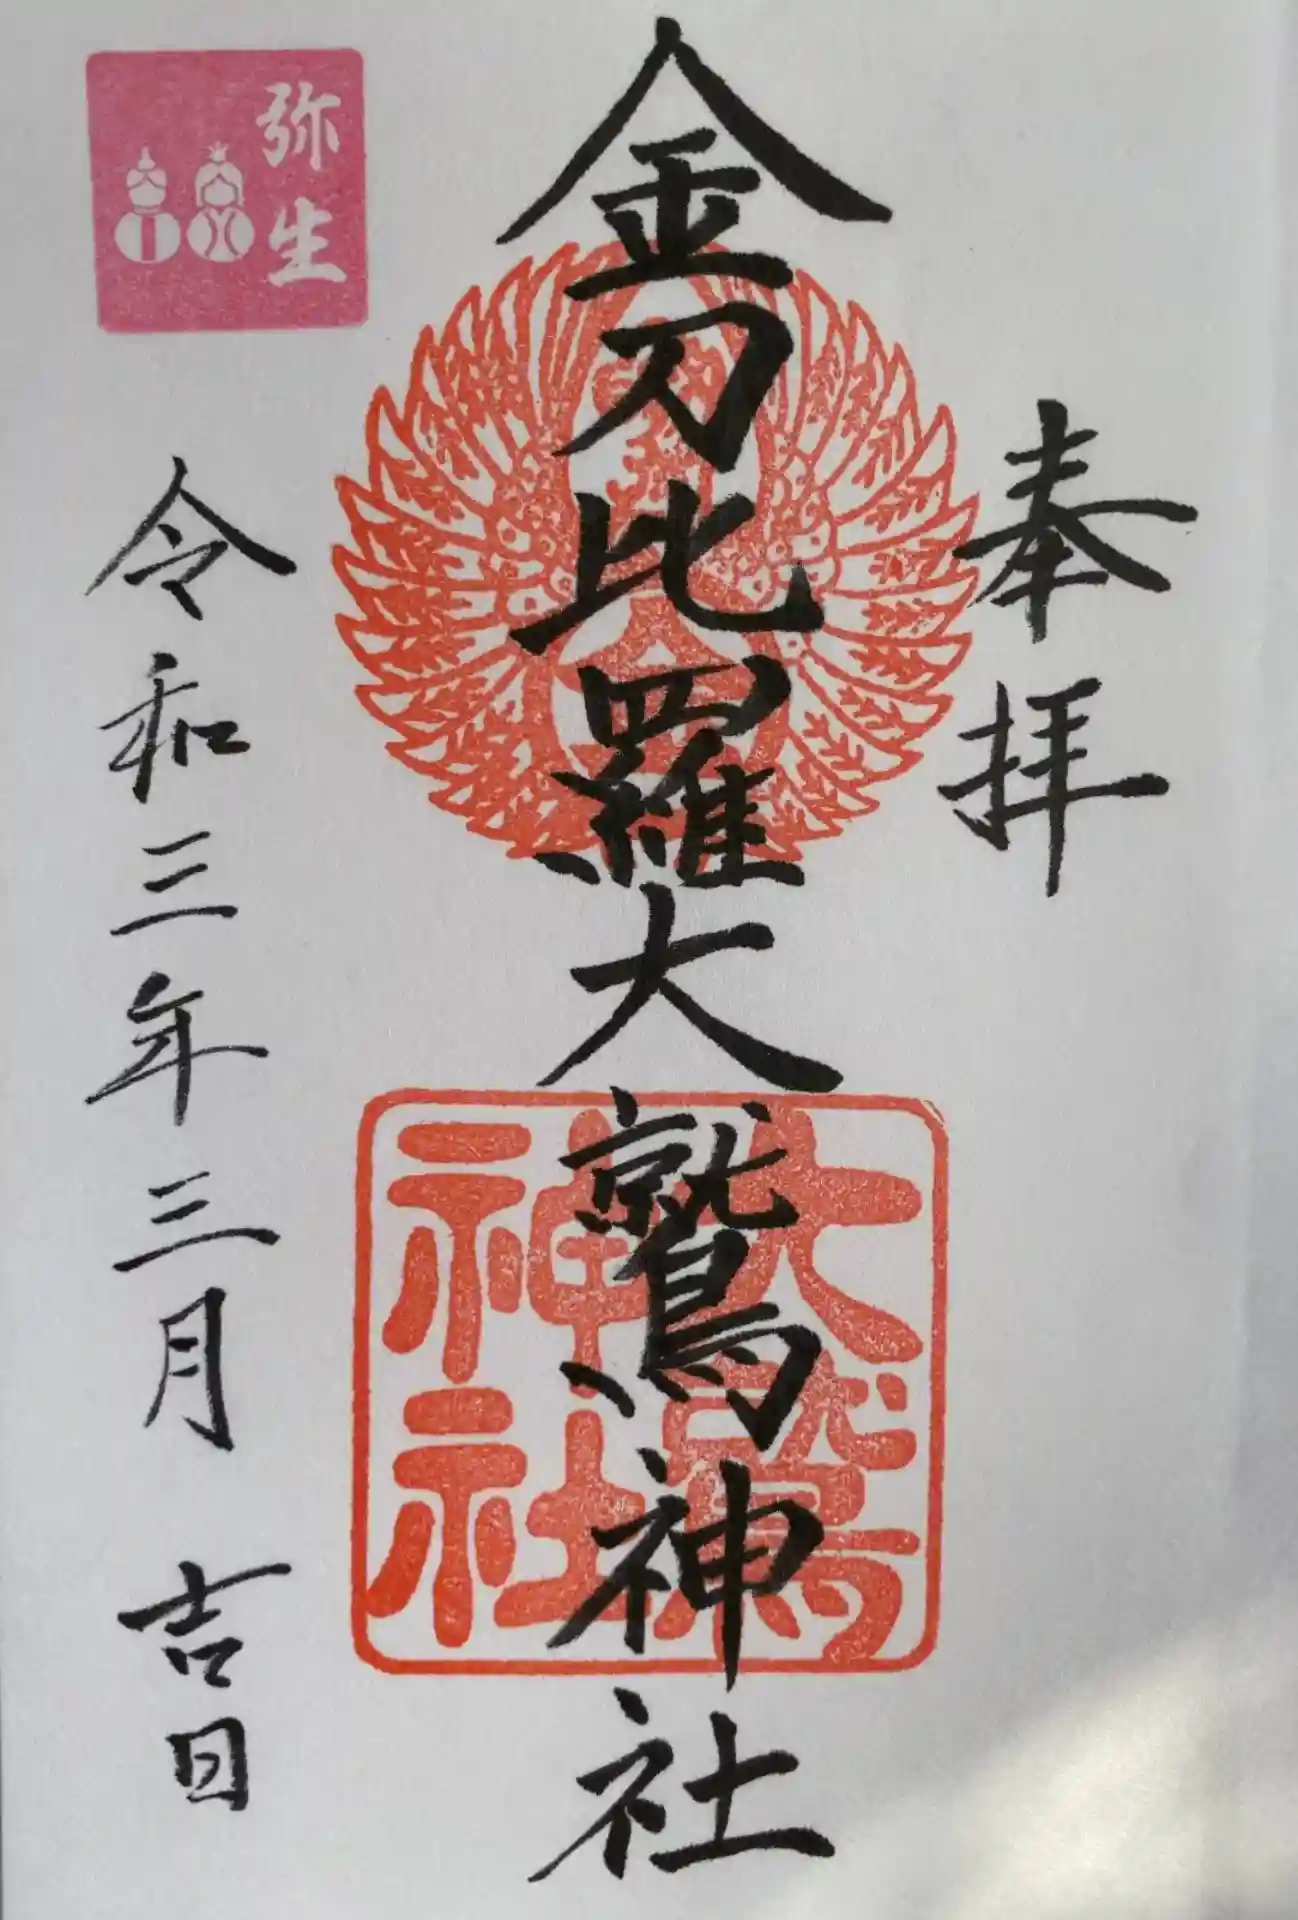 奉拝
金刀比羅大鷲神社
大鷲
神社
弥生
令和三年三月 吉日